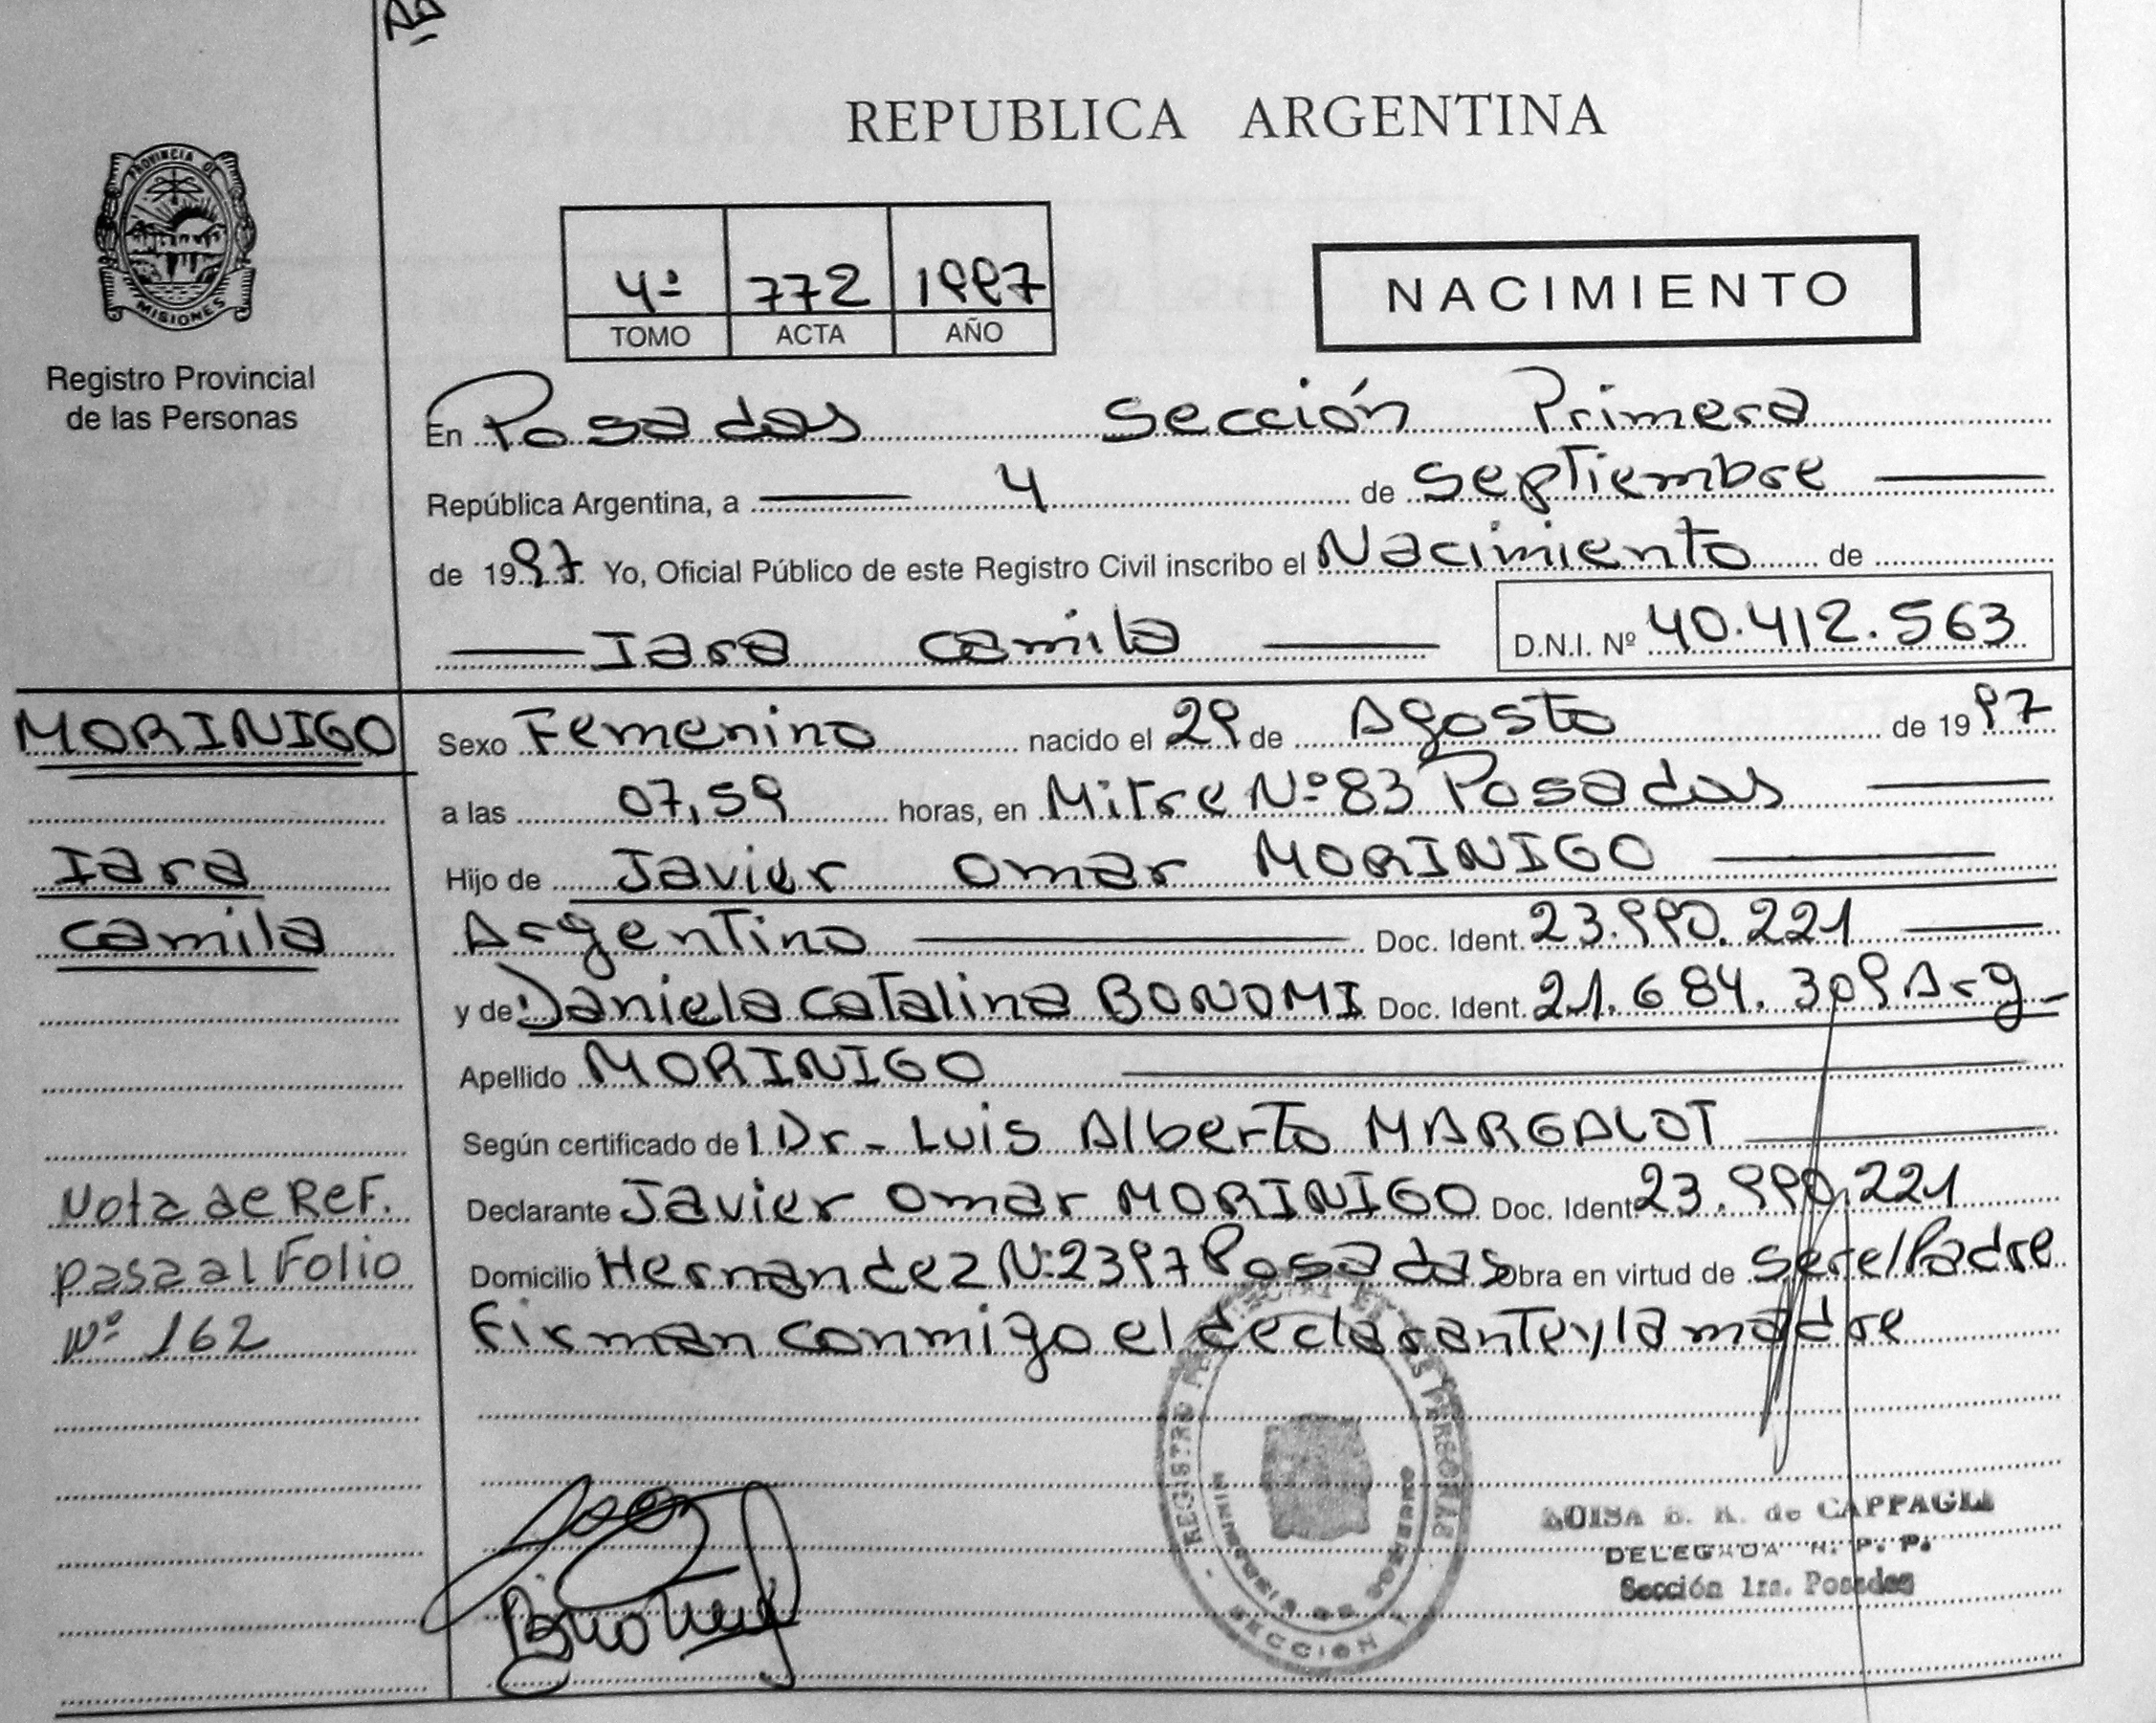 REPUBLICA ARGENTINA
PROVINCIA DE
MISIONES
Registro Provincial
de las Personas
4º 772 1997
TOMO ACTA AÑO
NACIMIENTO
En Posadas Sección Primera
República Argentina, a 4 de Septiembre
de 1997 Yo, Oficial Público de este Registro Civil inscribo el Nacimiento de
Iara Camila D.N.I. Nº 40.412.563
MORINIGO
Iara
Camila
Nota de Ref.
pasa al Folio
Nº 162
Sexo Femenino nacido el 29 de Agosto de 1997
a las 07,59 horas, en Mitre Nº 83 Posadas
Hijo de Javier Omar MORINIGO
Argentino Doc. Ident. 23.990.221
y de Daniela Catalina BONOMI Doc. Ident. 21.684.309 Arg
Apellido MORINIGO
Según certificado de l Dr- Luis Alberto MARGALOT
Declarante Javier Omar MORINIGO Doc. Ident 23.990.221
Domicilio Hernandez Nº 2397 Posadas Obra en virtud de ser el Padre
Firman conmigo el declarante y la madre
REGISTRO DE LAS PERSONAS
MINISTERIO DE GOBIERNO
SECCION 1
de CAPPAGLI
DELEGADA R. P. P.
Sección 1ra. Posadas